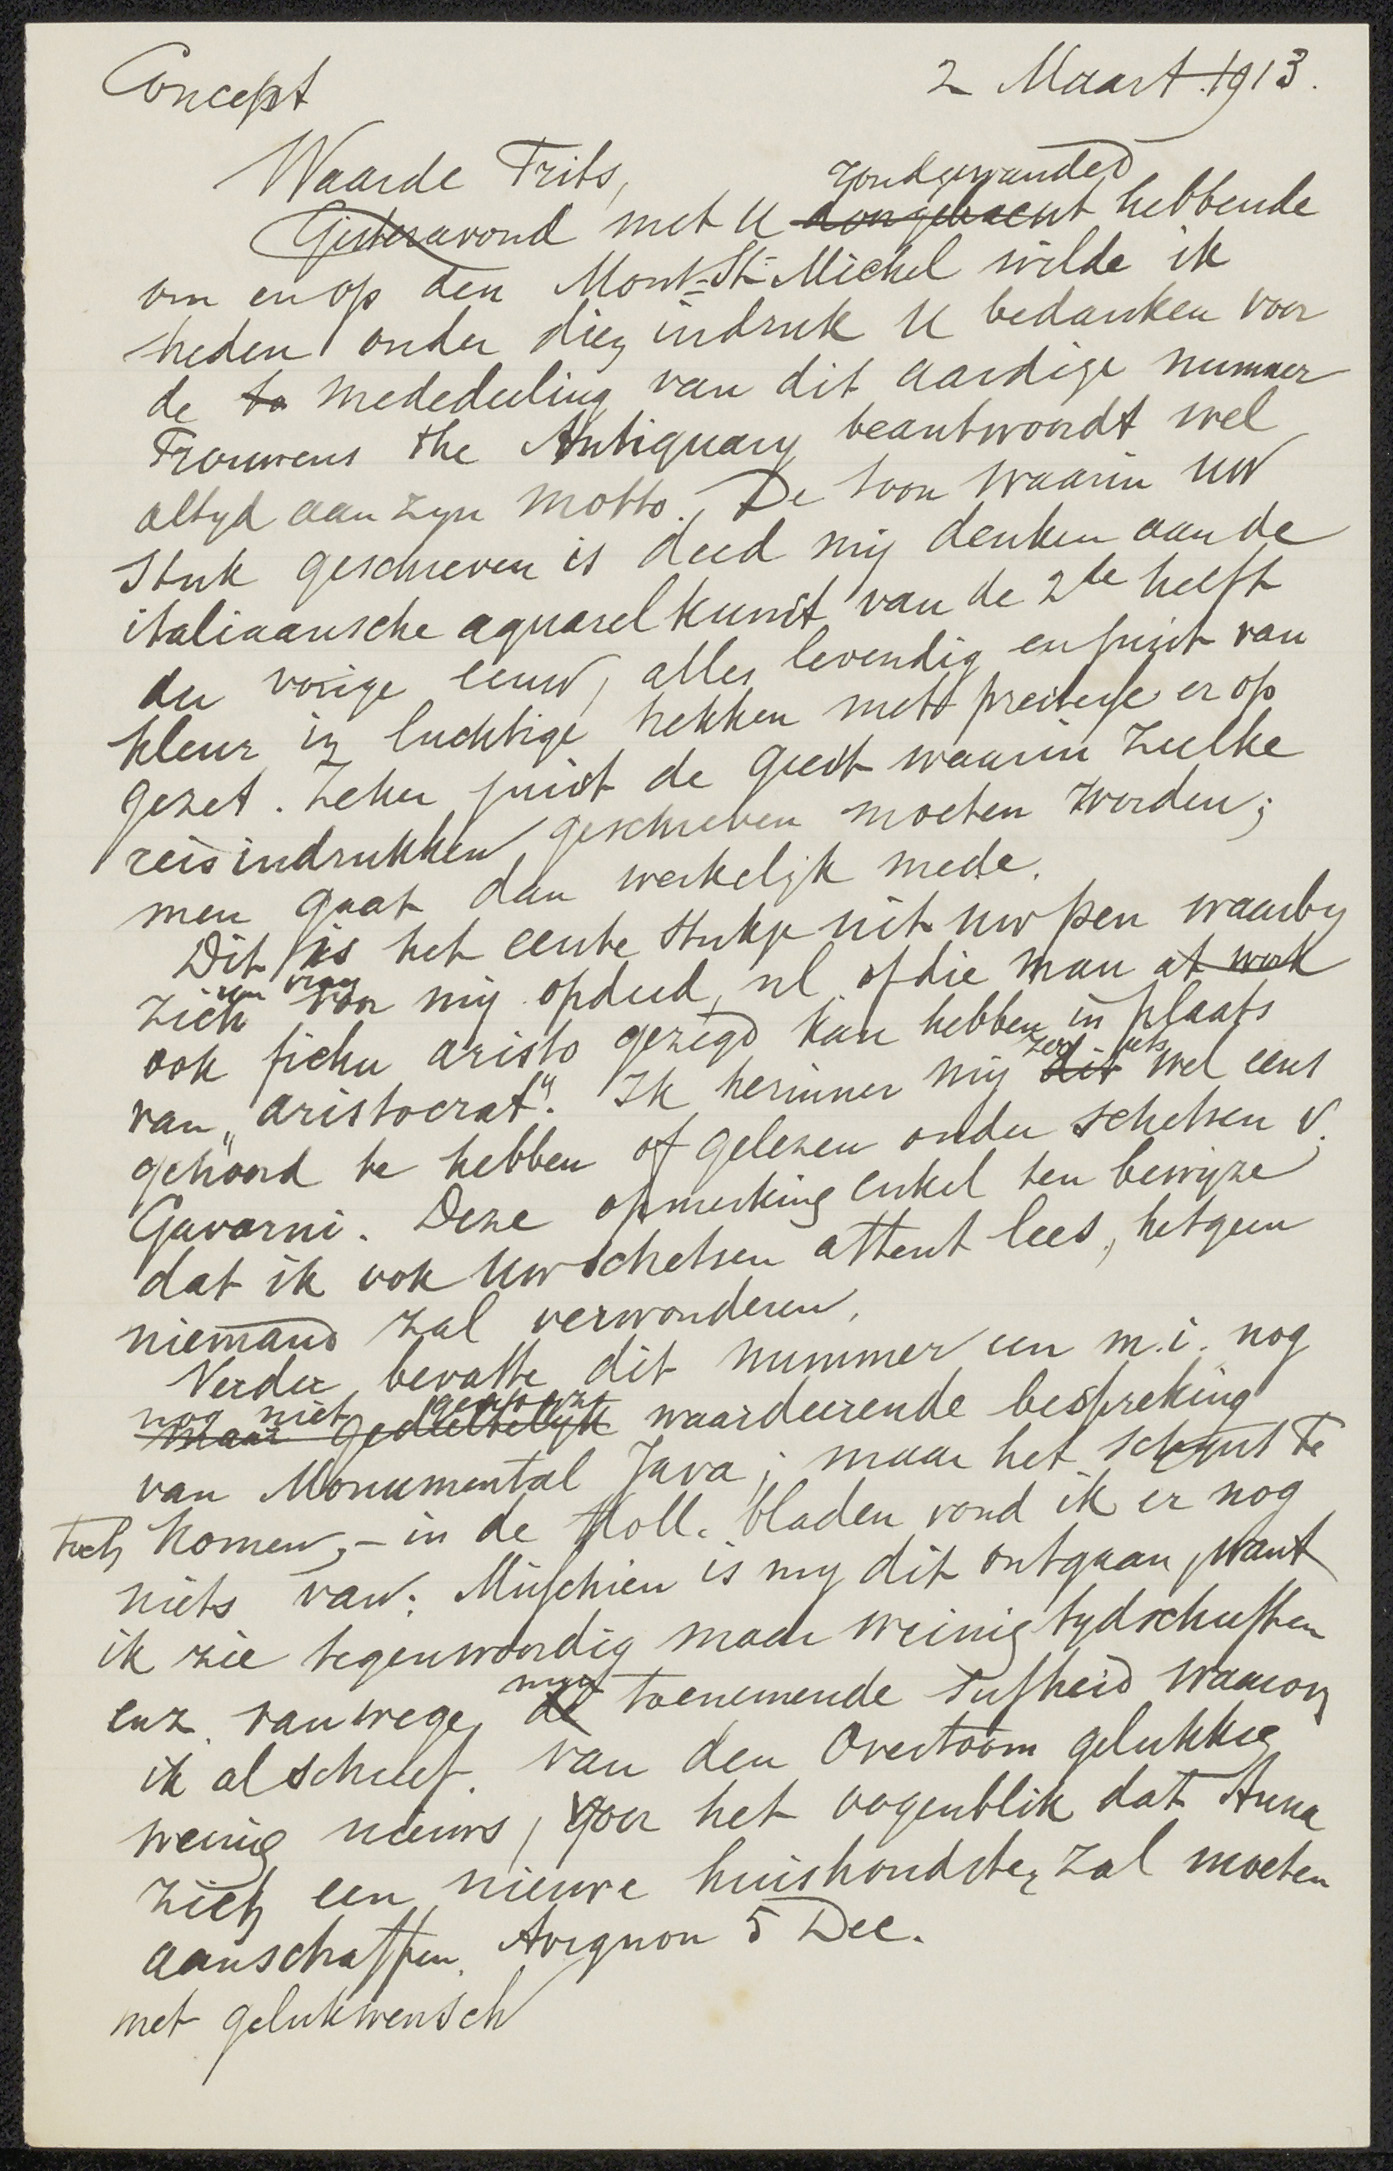 Concept
2 Maart 1913.
Waarde Frits,
rondgewandeld
Gisteravond met U doorgebracht hebbende
om en op den Mont-St-Michel wilde ik
heden onder dien indruk U bedanken voor
de to mededeeling van dit aardige nummer
Trouwens the Antiquary beantwoordt wel
altyd aan zyn motto. De toon waarin uw
stuk geschreven is deed mij denken aan de
italiaansche aquarelkunst van de 2de helft
der vorige eeuw, alles levendig en juist van
kleur in luchtige trekken met prestige er op
gezet. Zeker juist de geest waarin zulke
reisindrukken geschreven moeten worden;
men gaat dan werkelijk mede.
Dit is het eerste stukje uit uw pen waarby
een vraag
zich voor mij opdeed, nl of die man at work
ook fichu aristo gezegd kan hebben in plaats
zoo iets
van „aristocrat". Ik herinner mij dit wel eens
gehoord te hebben of gelezen onder schetsen v.
Gavarni. Deze opmerking enkel ten bewyze
dat ik ook uw schetsen attent lees, hetgeen
niemand zal verwonderen.
Verder bevatte dit nummer een m.i. nog
nog niet
maar gedeeltelijk waardeerende bespreking
van Monumental Java; maar het schynt te
toch komen, - in de Holl. bladen vond ik er nog
niets van. Misschien is my dit ontgaan, want
ik zie tegenwoordig maar weinig tydschriften
mijn
enz. vanwege de toenemende sufheid waarover
ik al schreef. van den Overtoom gelukkig
weinig nieuws, voor het oogenblik dat Anna
zich een nieuwe huishoudster zal moeten
aanschaffen. Avignon 5 Dec.
met gelukwensch